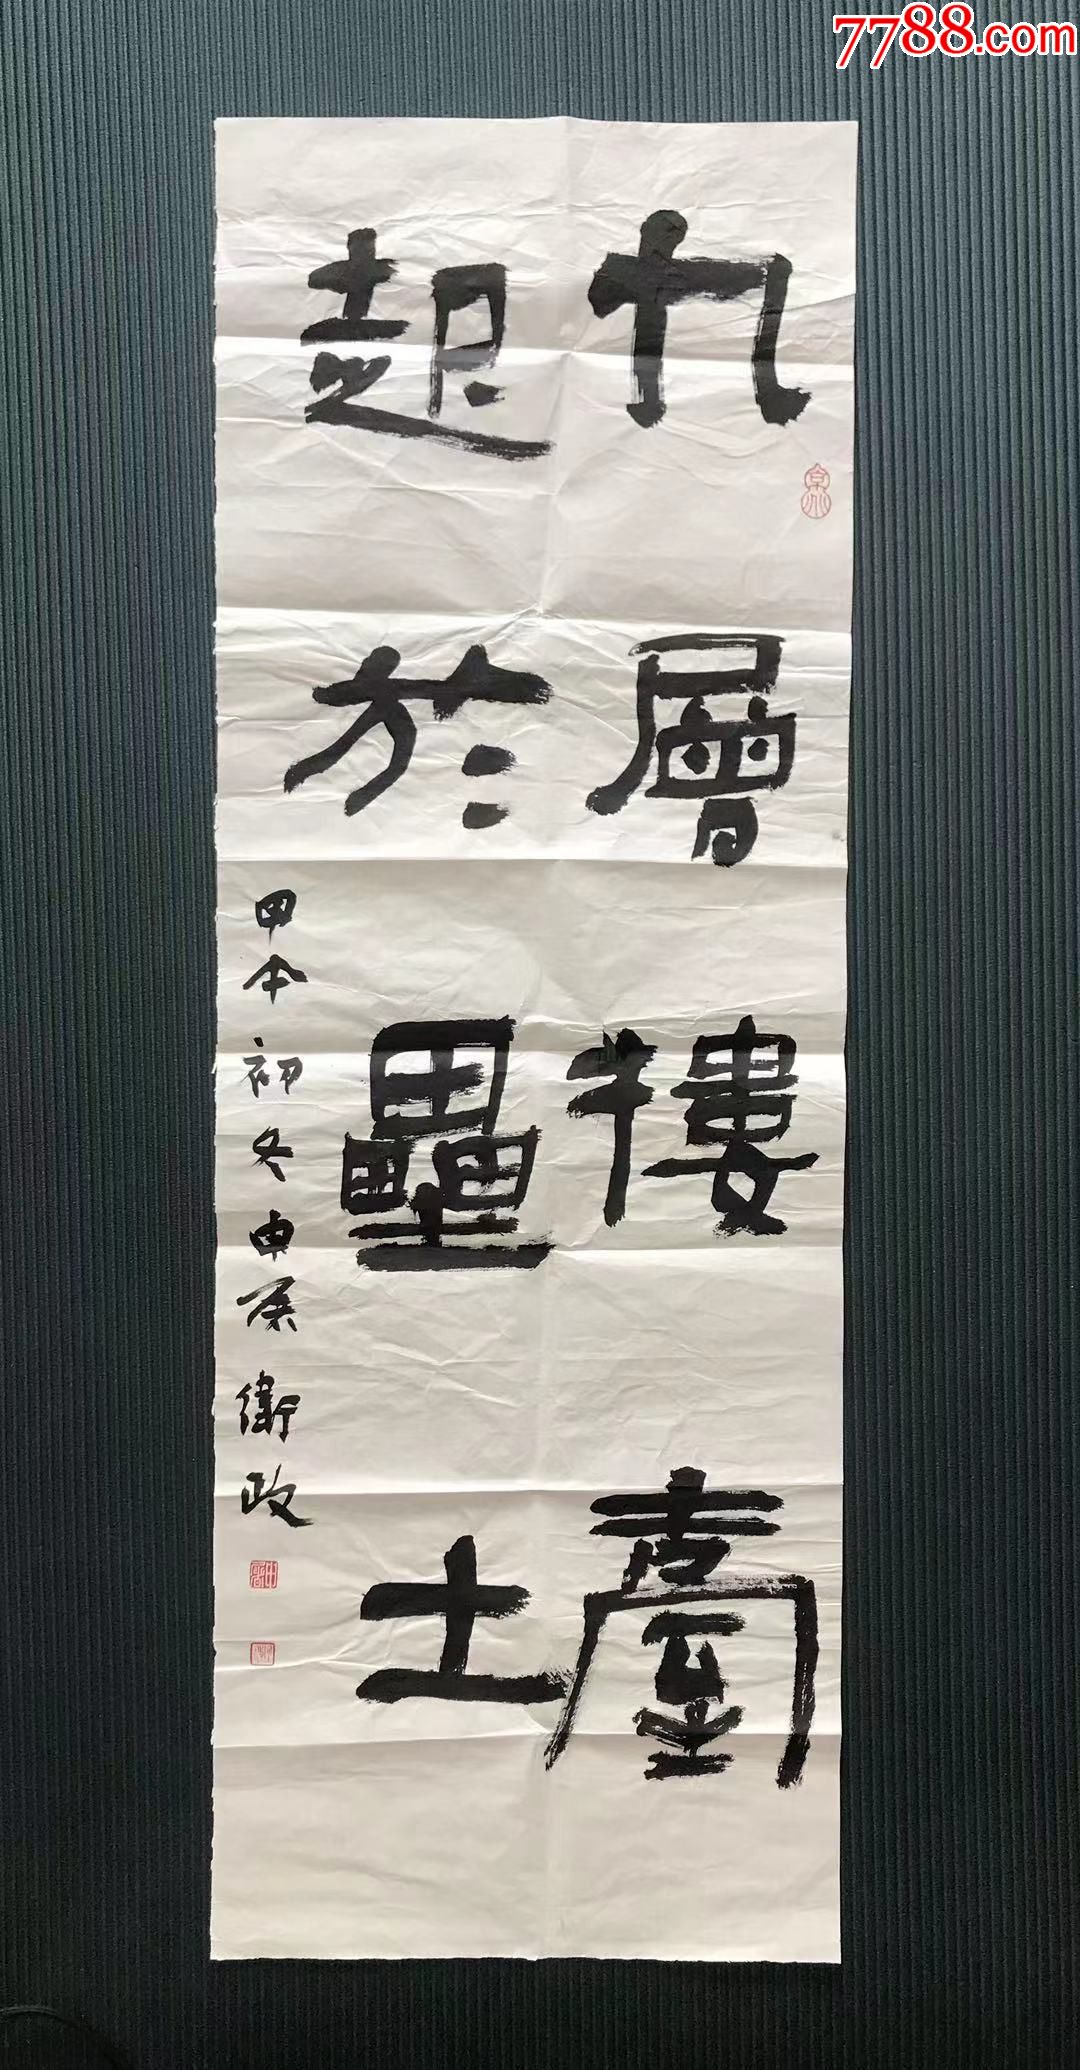 7788.com
九層樓臺
起於壘土
甲午初冬申衛政